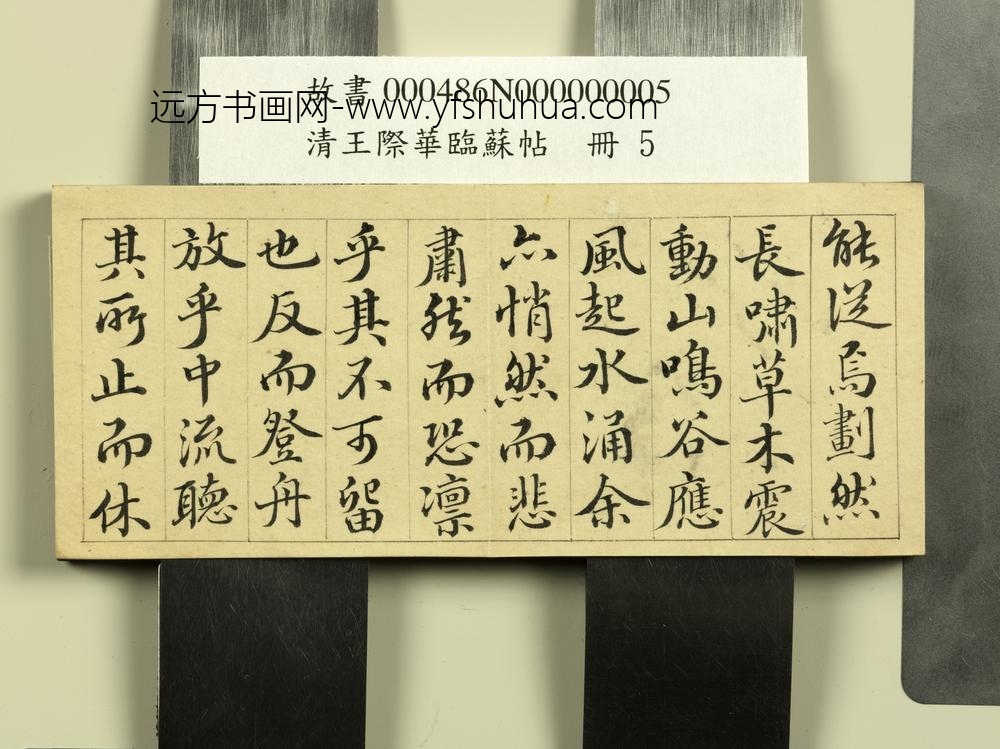 故書 000486N000000005
远方书画网-www.yfshuhua.com
清王際華臨蘇帖 冊 5
能從焉劃然
長嘯草木震
動山鳴谷應
風起水涌余
亦悄然而悲
肅然而恐凛
乎其不可留
也反而登舟
放乎中流聽
其所止而休